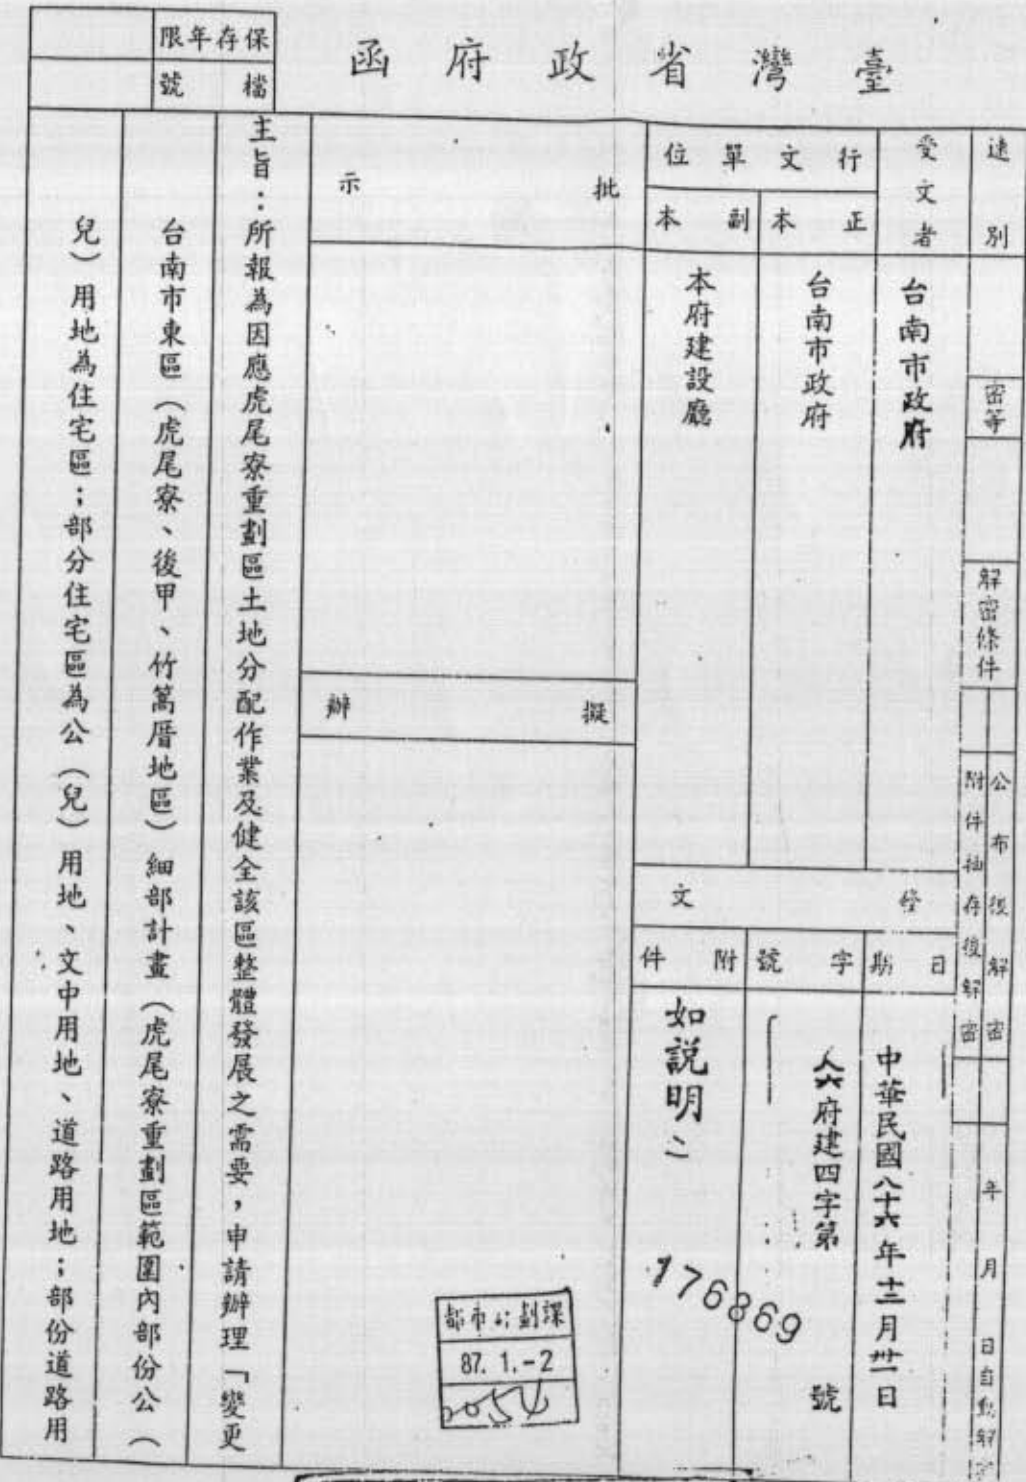 臺灣省政府函
保存年限
檔號
速別
密等
解密條件
公布後解密
附件抽存後解密
年月日自動解密
受文者
台南市政府
行文單位
正本
台南市政府
副本
本府建設廳
發文
日期
中華民國八十六年十二月卅一日
字號
八六府建四字第
176869
號
附件
如說明二
批示
擬辦
都市計劃課
87. 1.-2
主旨：所報為因應虎尾寮重劃區土地分配作業及健全該區整體發展之需要，申請辦理「變更
台南市東區（虎尾寮、後甲、竹篙厝地區）細部計畫（虎尾寮重劃區範圍內部份公（
兒）用地為住宅區；部分住宅區為公（兒）用地、文中用地、道路用地；部份道路用